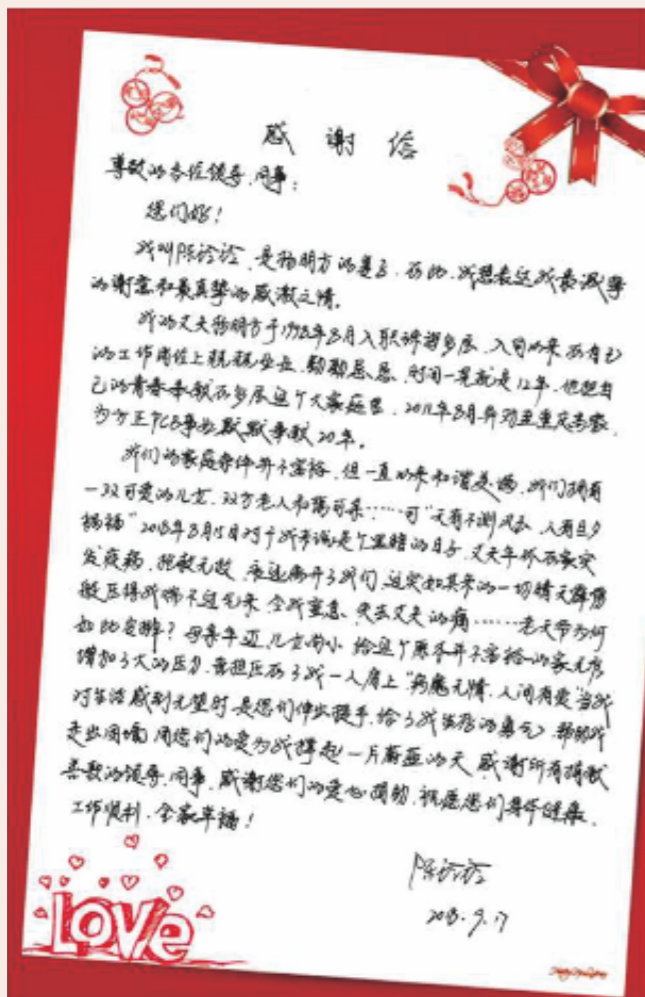 感谢信
尊敬的各位领导、同事：
您们好！
我叫陈诊诊，是杨明方的妻子，在此，我想表达我最诚挚
的谢意和最真挚的感激之情。
我的丈夫杨明方于1998年8月入职 多层，入司以来在自己
的工作岗位上兢兢业业、勤勤恳恳，时间一晃就是12年，他把自
己的青春奉献在多层这个大家庭里，2011年8月异动至重庆高密，
为方正PCB事业默默奉献20年。
我们的家庭条件并不富裕，但一直以来和谐美满，我们拥有
一双可爱的儿女，双方老人和蔼可亲……可“天有不测风云，人有旦夕
祸福”2018年8月15日对于我来说是个黑暗的日子，丈夫年 在家突
发疾病，抢救无效，永远离开了我们，这突如其来的一切晴天霹雳
般压得我喘不过气来，令我窒息，失去丈夫的痛……老天爷为何
如此安排？母亲年迈，儿女尚小，给这个原本并不富裕的家无形
增加了大的压力，重担压在了我一人肩上，“病魔无情，人间有爱”当我
对生活感到无望时，是您们伸出援手，给了我生存的勇气，帮助我
走出困境，用您们的爱为我撑起一片蔚蓝的天，感谢所有捐献
善款的领导、同事，感谢您们的爱心捐助，祝愿您们身体健康，
工作顺利，全家幸福！
陈诊诊
2018.9.17
LOVe